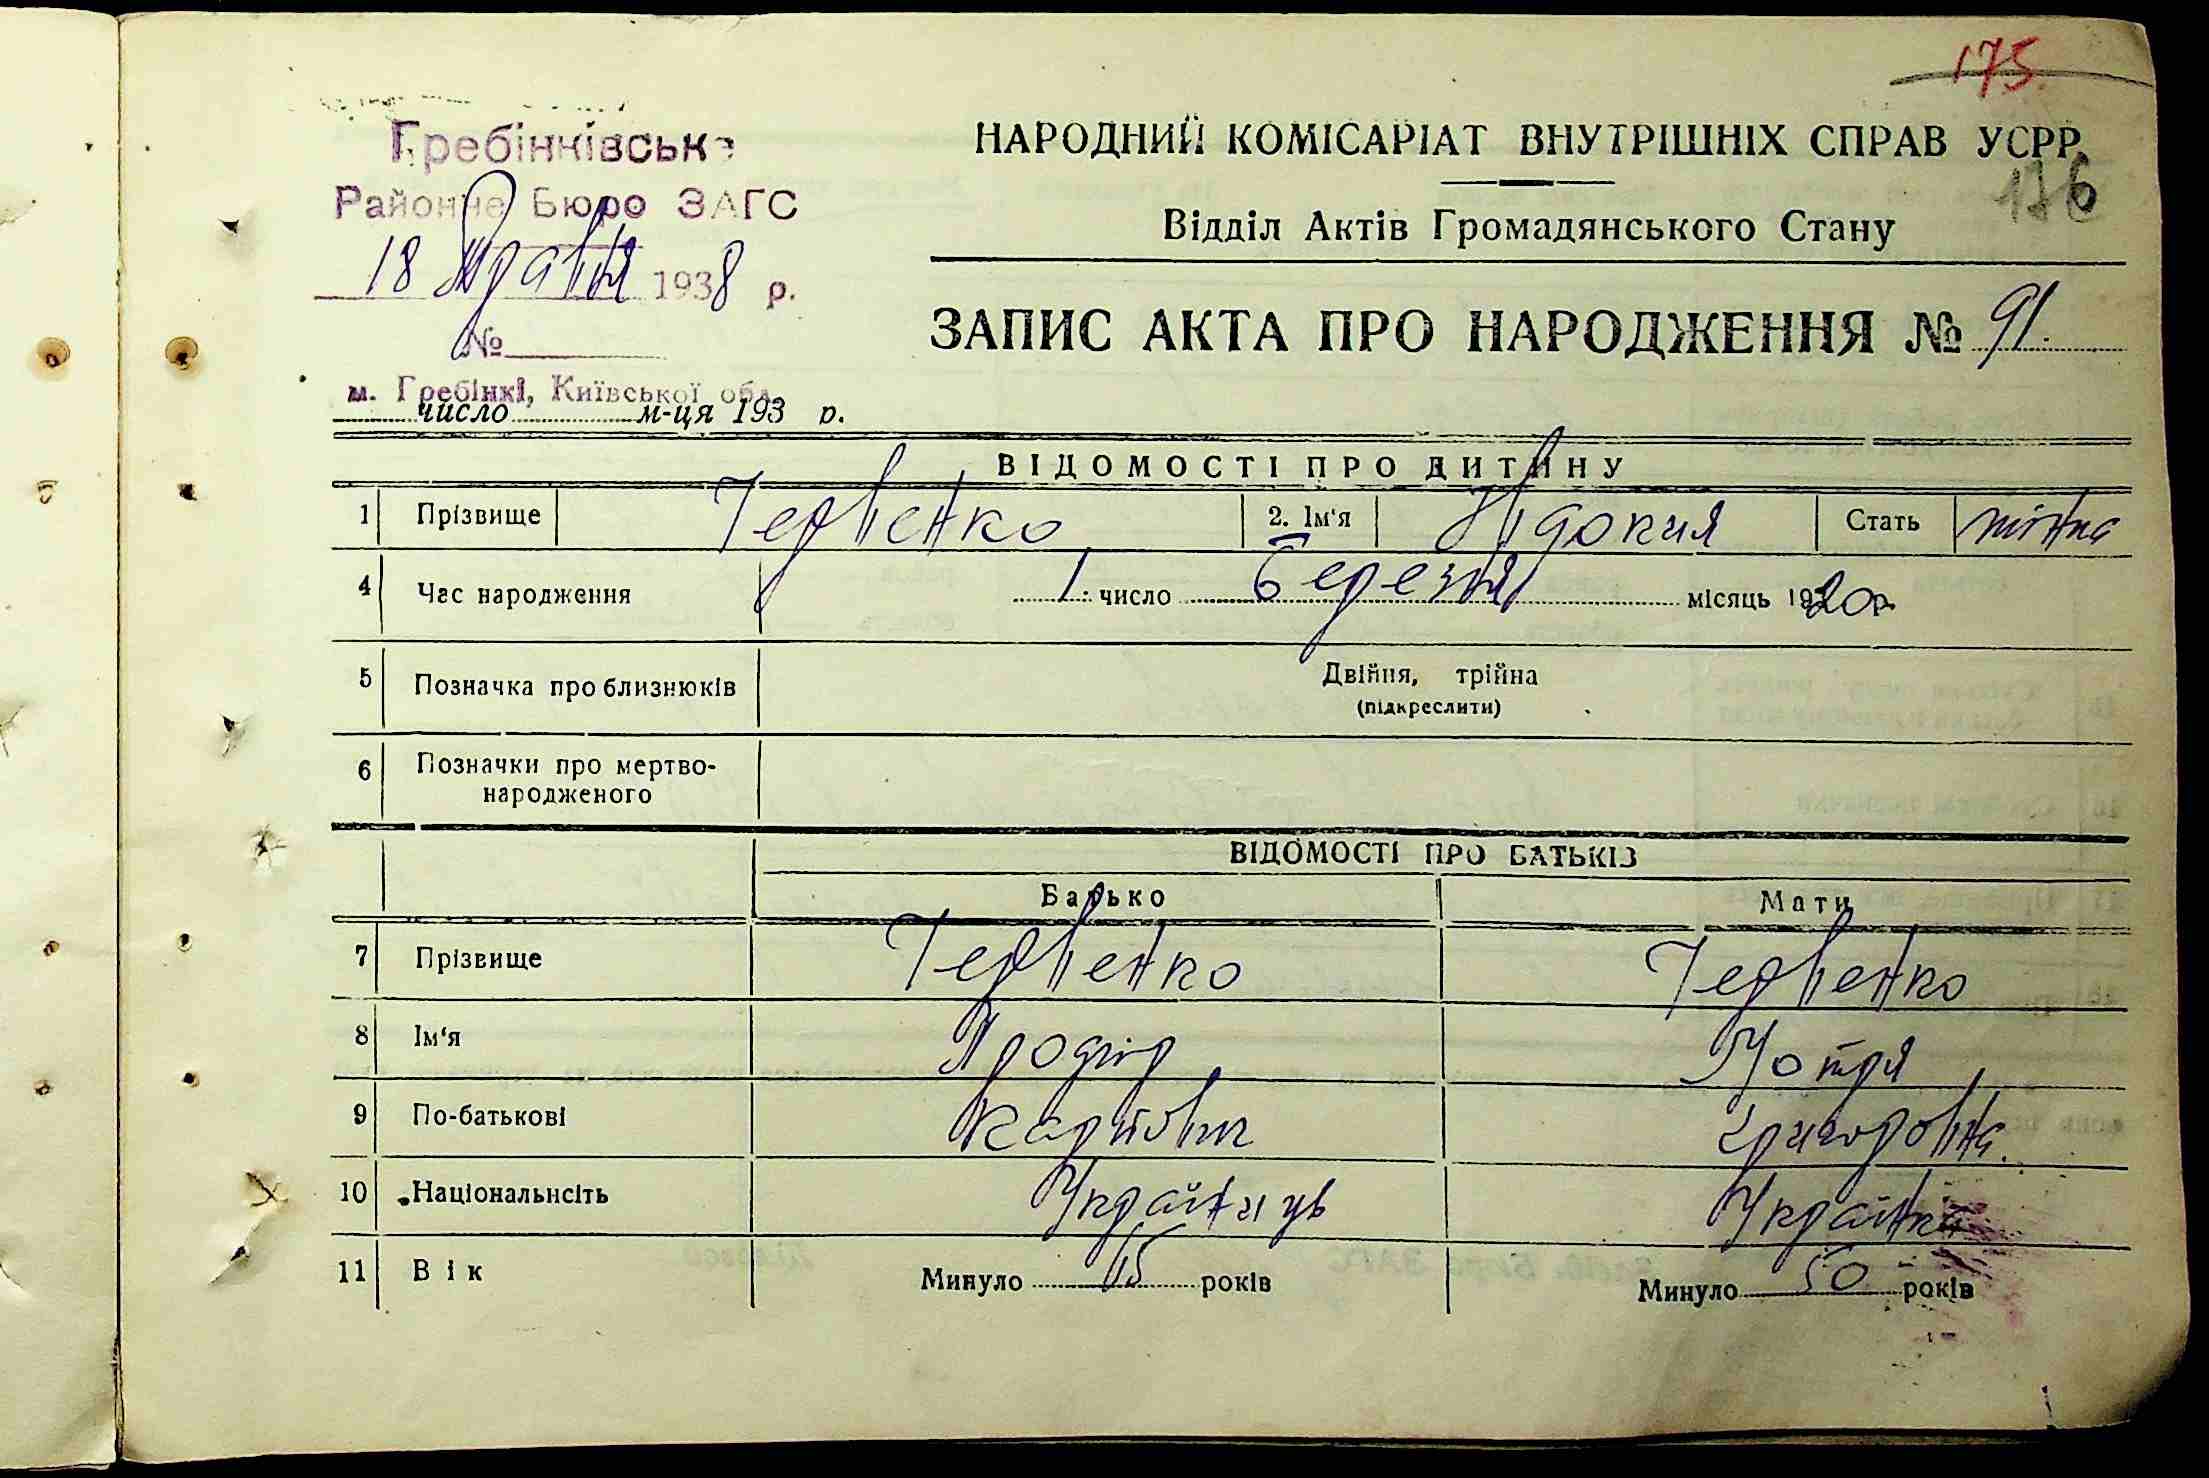 175.
НАРОДНИЙ КОМІСАРІАТ ВНУТРІШНІХ СПРАВ УСРР
176
Відділ Актів Громадянського Стану
Гребінківське
Районне Бюро ЗАГС
18 Травня 1938 р.
№
м. Гребінкі, Київської обл.
число м-ця 193 р.
ЗАПИС АКТА ПРО НАРОДЖЕННЯ № 91.
ВІДОМОСТІ ПРО ДИТИНУ
1 Прізвище 2. Ім'я Явдокия Стать жінка
4 Час народження 1. число Березня місяць 1920р.
5 Позначка про близнюків Двійня, трійна
(підкреслити)
6 Позначки про мертво-
народженого
ВІДОМОСТІ ПРО БАТЬКІВ
Батько Мати
7 Прізвище
8 Ім'я Мотря
9 По-батькові Карпович Григоровна.
10 Національнсіть Українць Українка
11 Вік Минуло років Минуло 50 років